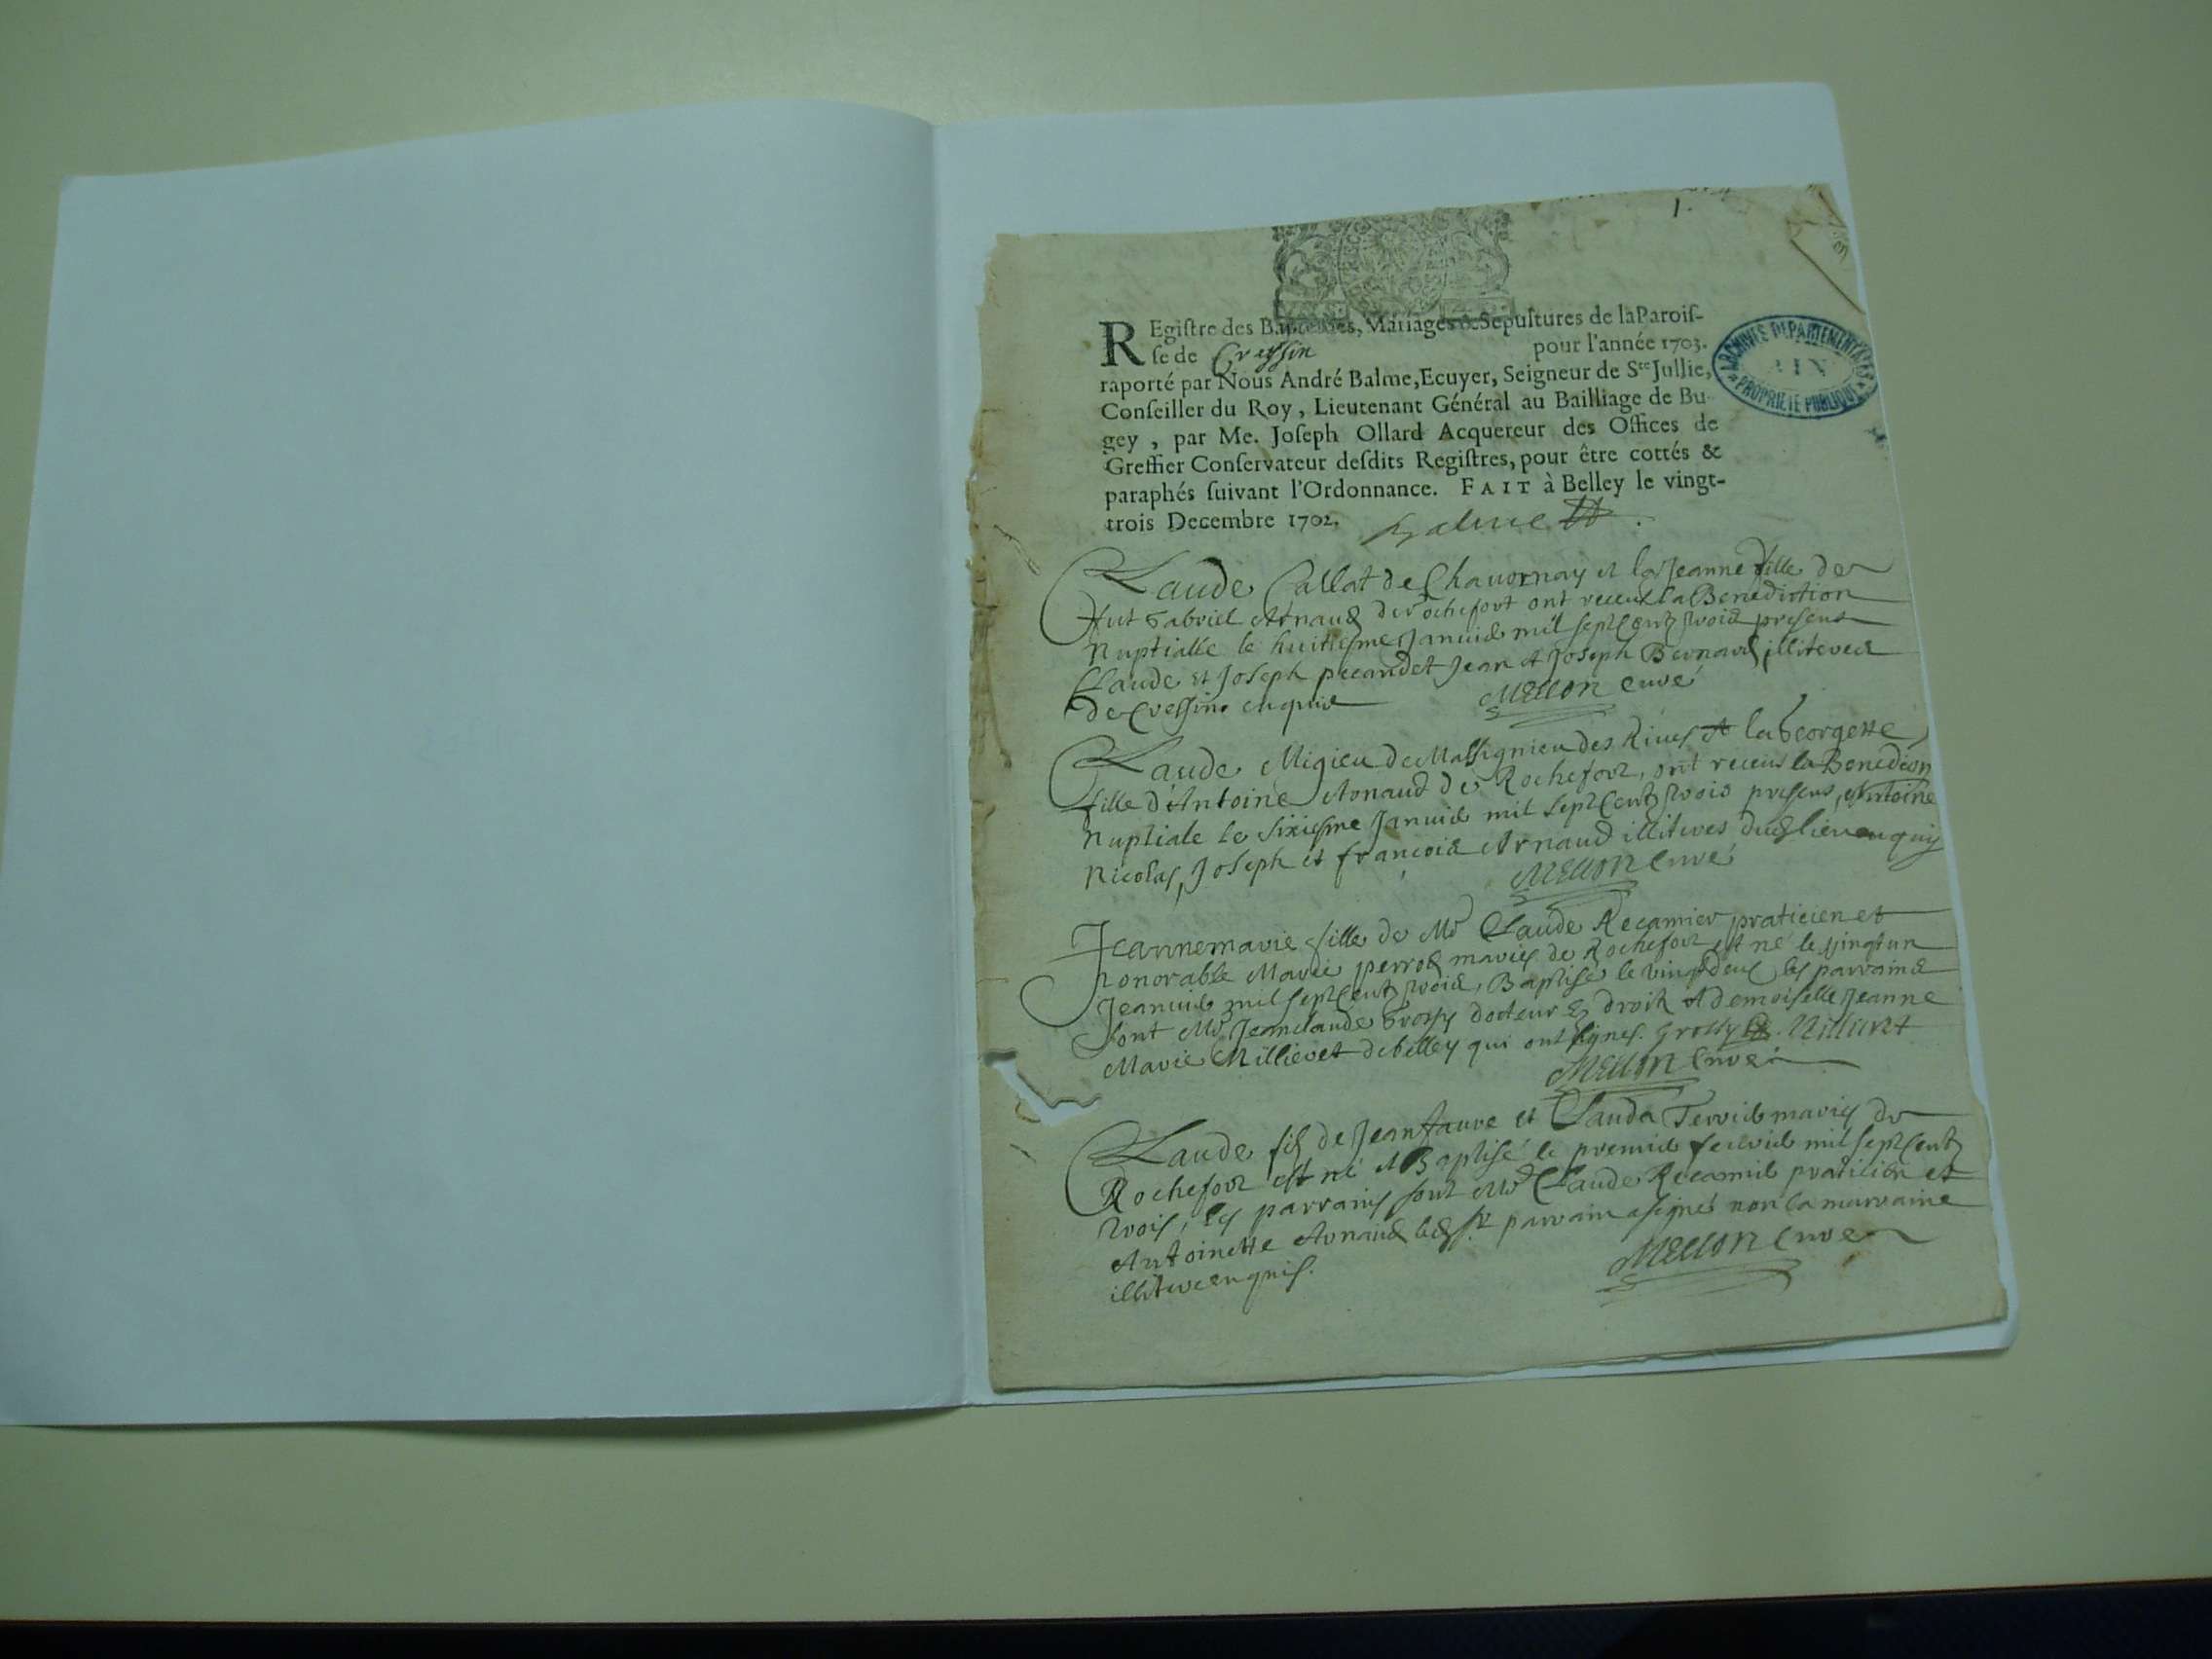 1.
REgiſtre des Baptesmes, Mariages & Sepultures de la Paroiſ-
ſe de Cressin pour l'année 1703.
raporté par Nous André Balme, Ecuyer, Seigneur de Ste Jullie,
Conſeiller du Roy, Lieutenant Général au Bailliage de Bu-
gey, par Me. Joſeph Ollard Acquereur des Offices de
Greffier Conſervateur deſdits Regiſtres, pour être cottés &
paraphés ſuivant l'Ordonnance. FAIT à Belley le vingt-
trois Decembre 1702. Balme
ARCHIVES DEPARTEMENTALES
AIN
PROPRIETE PUBLIQUE
Claude Callat de Chavornay et la Jeanne fille de
fut Gabriel Arnaud de Rochefort ont receu la Benediction
Nuptialle le huitiesme Janvier mil sept cent trois presens
Claude et Joseph Jean et Joseph Bernard illiteres
de Cressin enquis Mellon curé
Claude Migieu de Massignieu des Rives et la Georgette
fille d'Antoine Arnaud de Rochefort, ont receus la Benedćon
Nuptiale le sixiesme Janvier mil sept cent trois presens, Antoine
Nicolas, Joseph et françois Arnaud illiteres dud lieu enquis
Mellon Curé
Jeannemarie fille de Mr Claude Recamier praticien et
honorable Marie perrod mariés de Rochefort est né le vingt un
Jeanvier mil sept cent trois, Baptisé le vingt deux les parrains
sont Mr Jeanclaude Grossy docteur es droit et demoiselle Jeanne
Marie Millieret de belley qui ont signés. Grossy Millieret
Mellon Curé
Claude fils de Jean faure et Clauda Terrier mariés de
Rochefort est né et Baptisé le premier febvrier mil sept cent
trois, les parrains sont Mr Claude Recamier praticien et
Antoinette Arnaud led sr parrain a signé non la marraine
illitere enquis. Mellon Curé